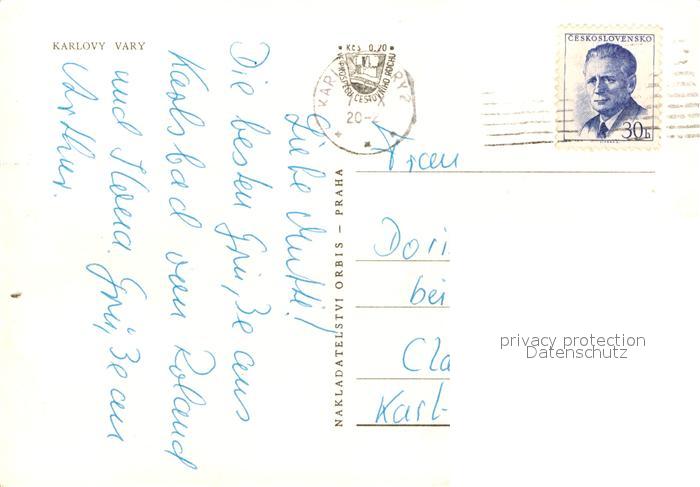 KARLOVY VARY
Liebe Mutti!
Die besten Grüße aus
Karlsbad von Roland
und Ilona. Grüße an
Arthur.
NAKLADATELSTVÍ ORBIS – PRAHA
Kčs 0,20
ČESKOSLOVENSKO
30h
Frau
Dori
bei
Cla
Karl-
privacy protection
Datenschutz